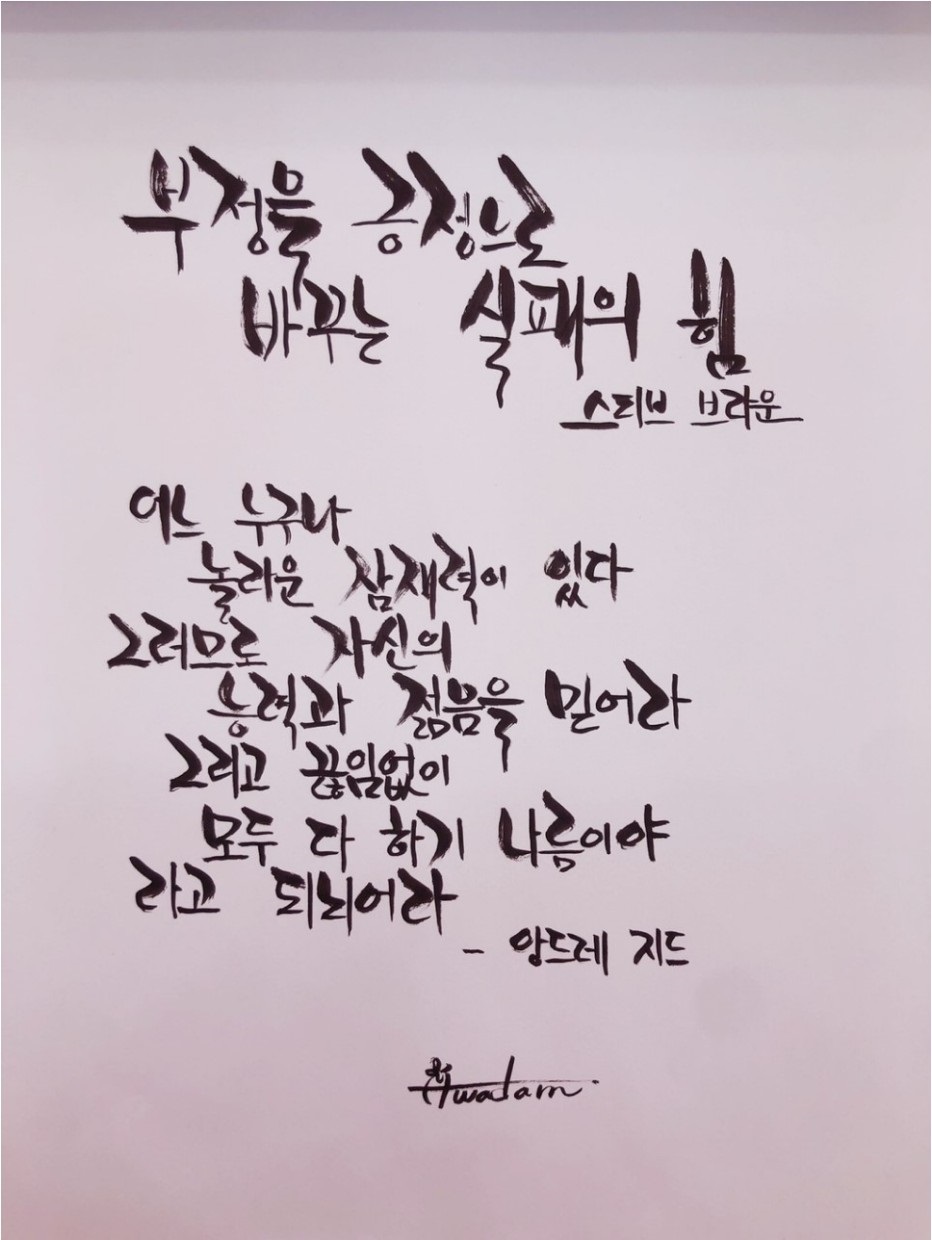 부정을 긍정으로
바꾸는 실패의 힘
스티브 브라운
어느 누구나
놀라운 잠재력이 있다
그러므로 자신의
능력과 젊음을 믿어라
그리고 끊임없이
모두 다 하기 나름이야
라고 되뇌어라
- 앙드레 지드
Hwadam